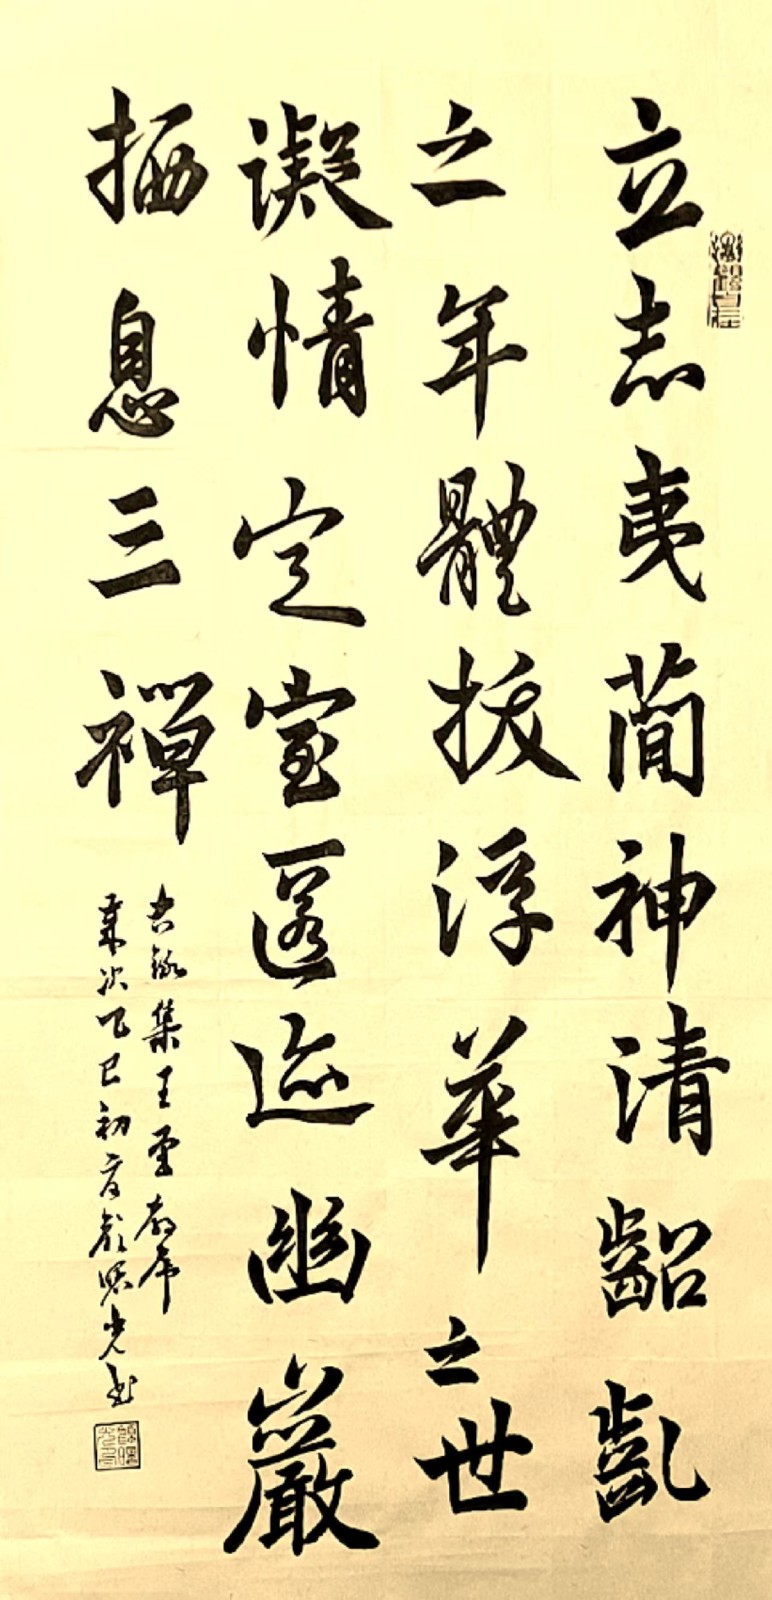 立志夷簡神清齠齔
之年體拔浮華之世
凝情定室匿迹幽巖
栖息三禪
右錄集王聖教序
歲次乙巳初夏顏光書